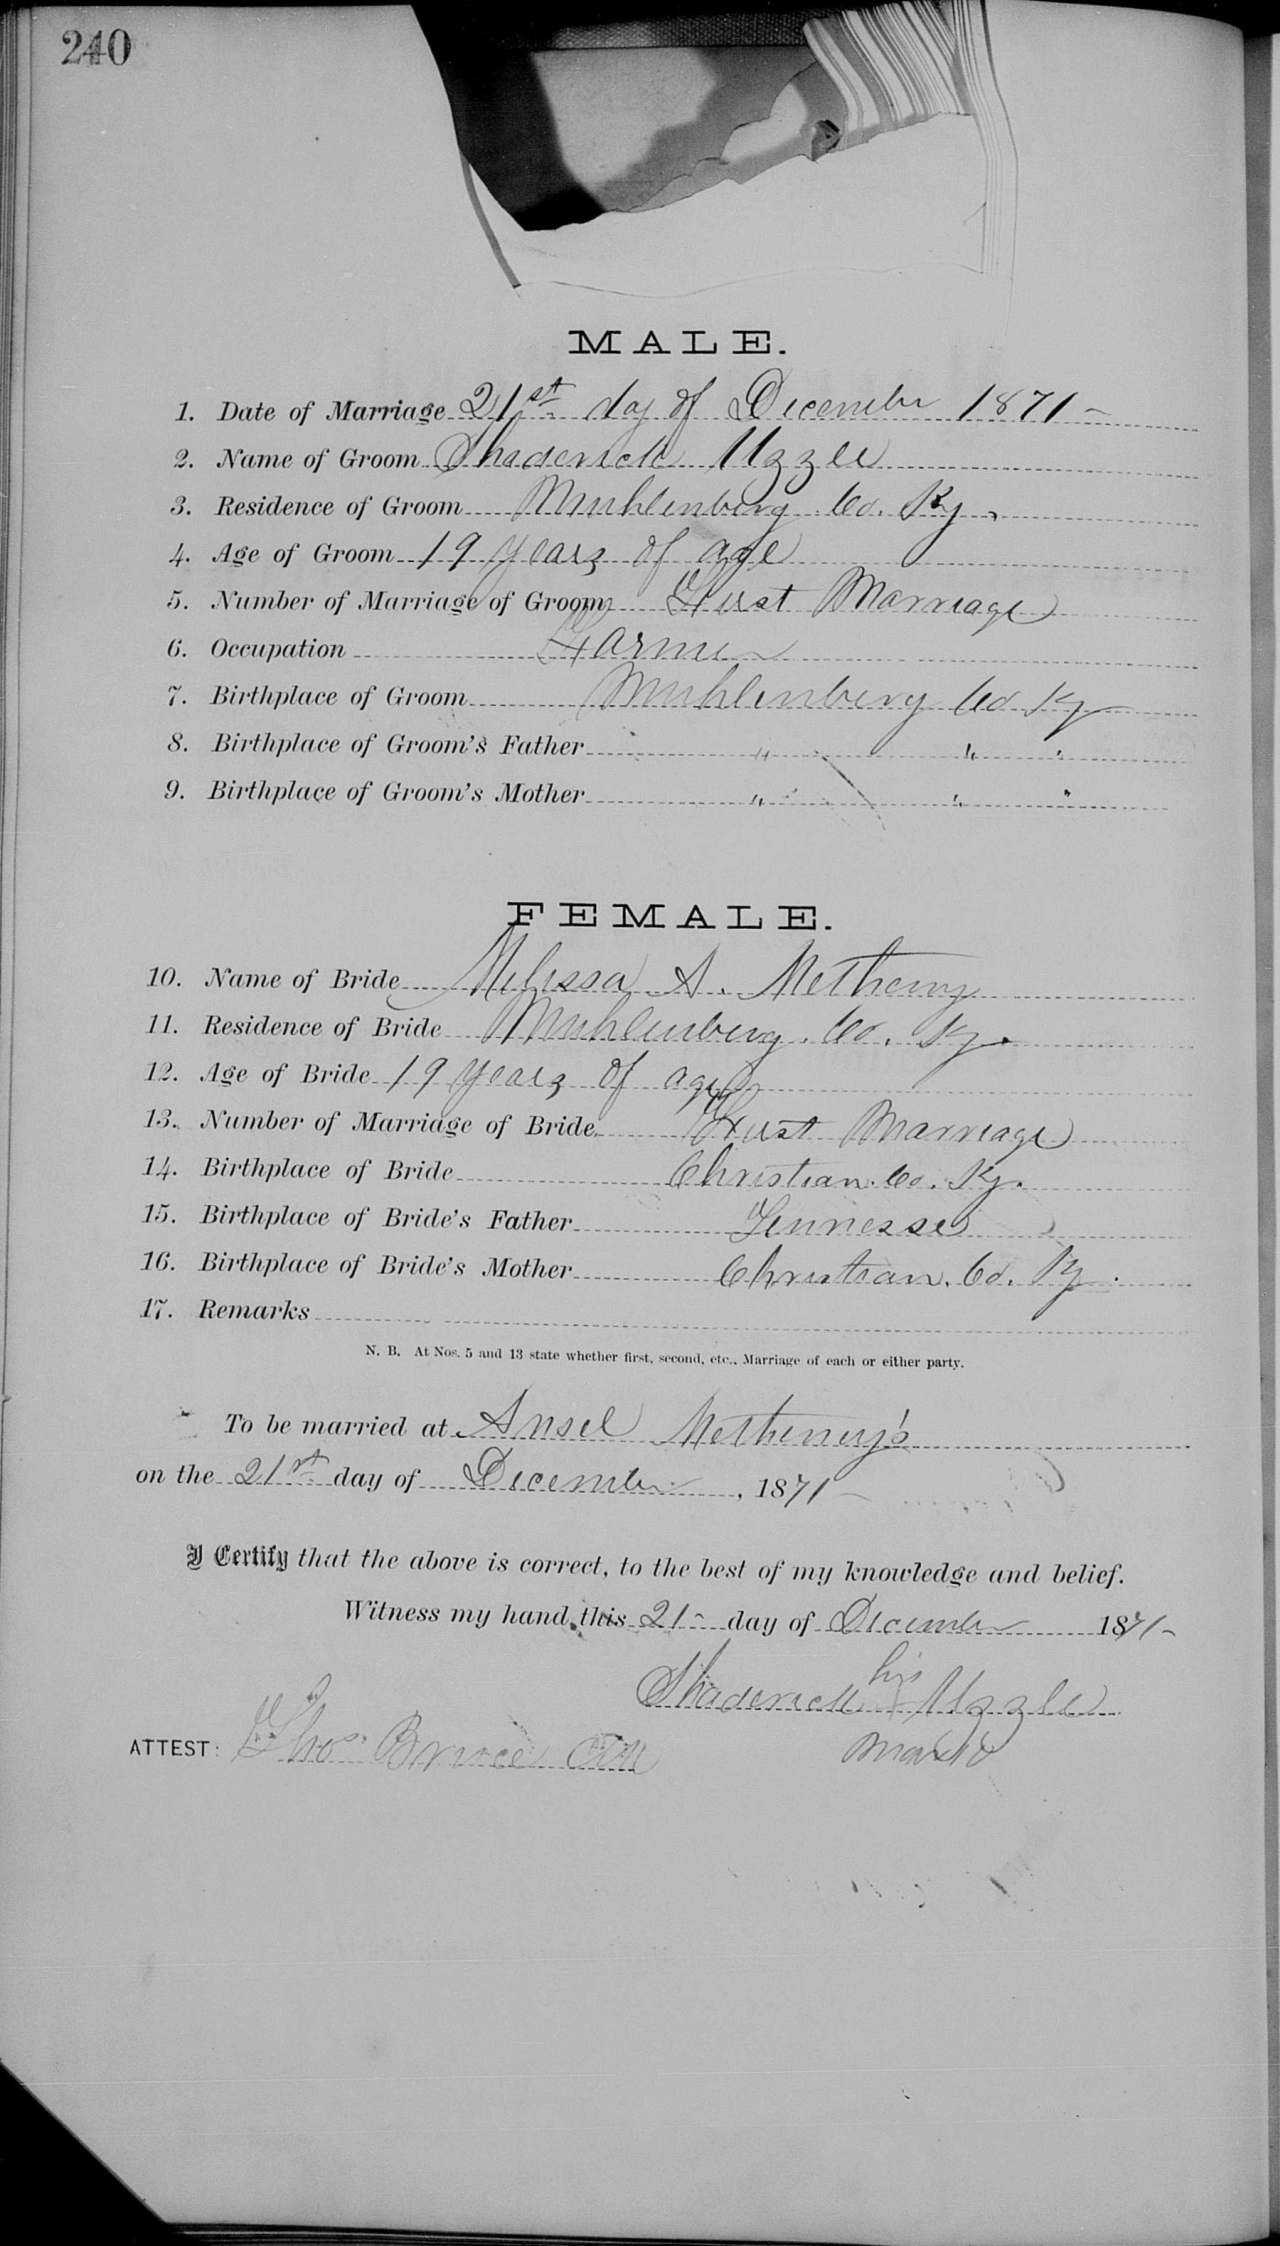 240
MALE.
1. Date of Marriage 21st day of December 1871 -
2. Name of Groom Shaderick Uzzle
3. Residence of Groom Muhlenberg Co. Ky.
4. Age of Groom 19 years of age
5. Number of Marriage of Groom First Marriage
6. Occupation Farmer
7. Birthplace of Groom Muhlenberg Co Ky
8. Birthplace of Groom's Father " " "
9. Birthplace of Groom's Mother " " "
FEMALE.
10. Name of Bride Melissa A. Metheny
11. Residence of Bride Muhlenberg. Co. Ky.
12. Age of Bride 19 years of age
13. Number of Marriage of Bride First Marriage
14. Birthplace of Bride Christian Co. Ky.
15. Birthplace of Bride's Father Tennesse
16. Birthplace of Bride's Mother Christian. Co. Ky.
17. Remarks
N. B. At Nos. 5 and 13 state whether first, second, etc., Marriage of each or either party.
To be married at Ansel Metheny's
on the 21st day of December, 1871 -
I Certify that the above is correct, to the best of my knowledge and belief.
Witness my hand this 21- day of December 1871-
his
Shaderick X Uzzle
mark
ATTEST: Thos. Bruce